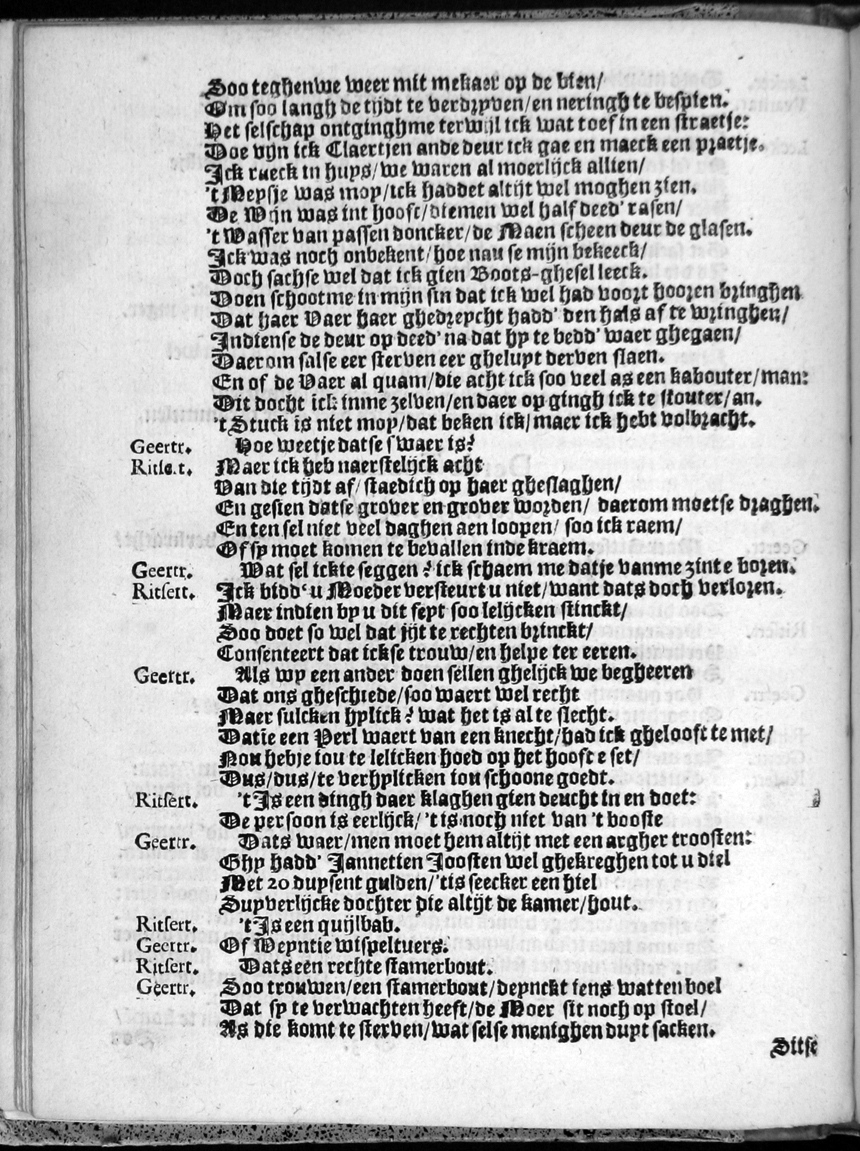 Soo teghenwe weer mit mekaer op de bien/
Om soo langh de tijdt te verdryven/en neringh te bespien.
Het selschap ontginghme terwijl ick wat toef in een straetje:
Doe vijn ick Claertjen ande deur ick gae en maeck een praetje.
Ick raeck in huys/we waren al moerlijck allien/
't Meysje was moy/ick haddet altijt wel moghen zien.
De Wijn was int hooft/diemen wel half deed' rasen/
't Wasser van passen doncker/de Maen scheen deur de glasen.
Ick was noch onbekent/hoe nau se mijn bekeeck/
Doch sachse wel dat ick gien Boots-ghesel leeck.
Doen schootme in mijn sin dat ick wel had voort hooren bringhen
Dat haer Vaer haer ghedreycht hadd' den hals af te wringhen/
Indiense de deur op deed' na dat hy te bedd' waer ghegaen/
Daerom salse eer sterven eer gheluyt derven slaen.
En of de Vaer al quam/die acht ick soo veel as een kabouter/man:
Dit docht ick inme zelven/en daer op gingh ick te stouter/an.
't Stuck is niet moy/dat beken ick/maer ick hebt volbracht.
Geertr. Hoe weetje datse swaer is?
Ritse.t. Maer ick heb naerstelijck acht
Van die tijdt af/staedich op haer gheslaghen/
En gesien datse grover en grover worden/ daerom moetse draghen.
En ten sel niet veel daghen aen loopen/ soo ick raem/
Of sy moet komen te bevallen inde kraem.
Geertr. Wat sel ickie seggen? ick schaem me datje vanme zinte boren.
Ritsert. Ick bidd' u Moeder versteurt u niet/want dats doch verloren.
Maer indien by u dit feyt soo lelijcken stinckt/
Soo doet so wel dat jijt te rechten brinckt/
Consenteert dat ickse trouw/en helpe ter eeren.
Geertr. Als wy een ander doen sellen ghelijck we begheeren
Dat ons gheschiede/soo waert wel recht
Maer sulcken hylick? wat het is al te slecht.
Datie een Perl waert van een knecht/had ick ghelooft te met/
Nou hebje iou te lelicken hoed op het hooft e set/
Dus/dus/te verhylicken iou schoone goedt.
Ritsert. 't Is een dingh daer klaghen gien deucht in en doet:
De persoon is eerlijck/'t is noch niet van 't booste
Geertr. Dats waer/men moet hem altijt met een argher troosten:
Ghy hadd' Jannetien Joosten wel ghekreghen tot u diel
Met 20 duysent gulden/'tis seecker een hiel
Suyverlijcke dochter die altijt de kamer/hout.
Ritsert. 't Is een quijlbab.
Geertr. Of Weyntie wispeltuers.
Ritsert. Dats een rechte stamerbout.
Geertr. Soo trouwen/een stamerbout/deynckt iens watten boel
Dat sy te verwachten heeft/de Moer sit noch op stoel/
As die komt te sterven/wat selse menighen duyt sacken.
Ditse